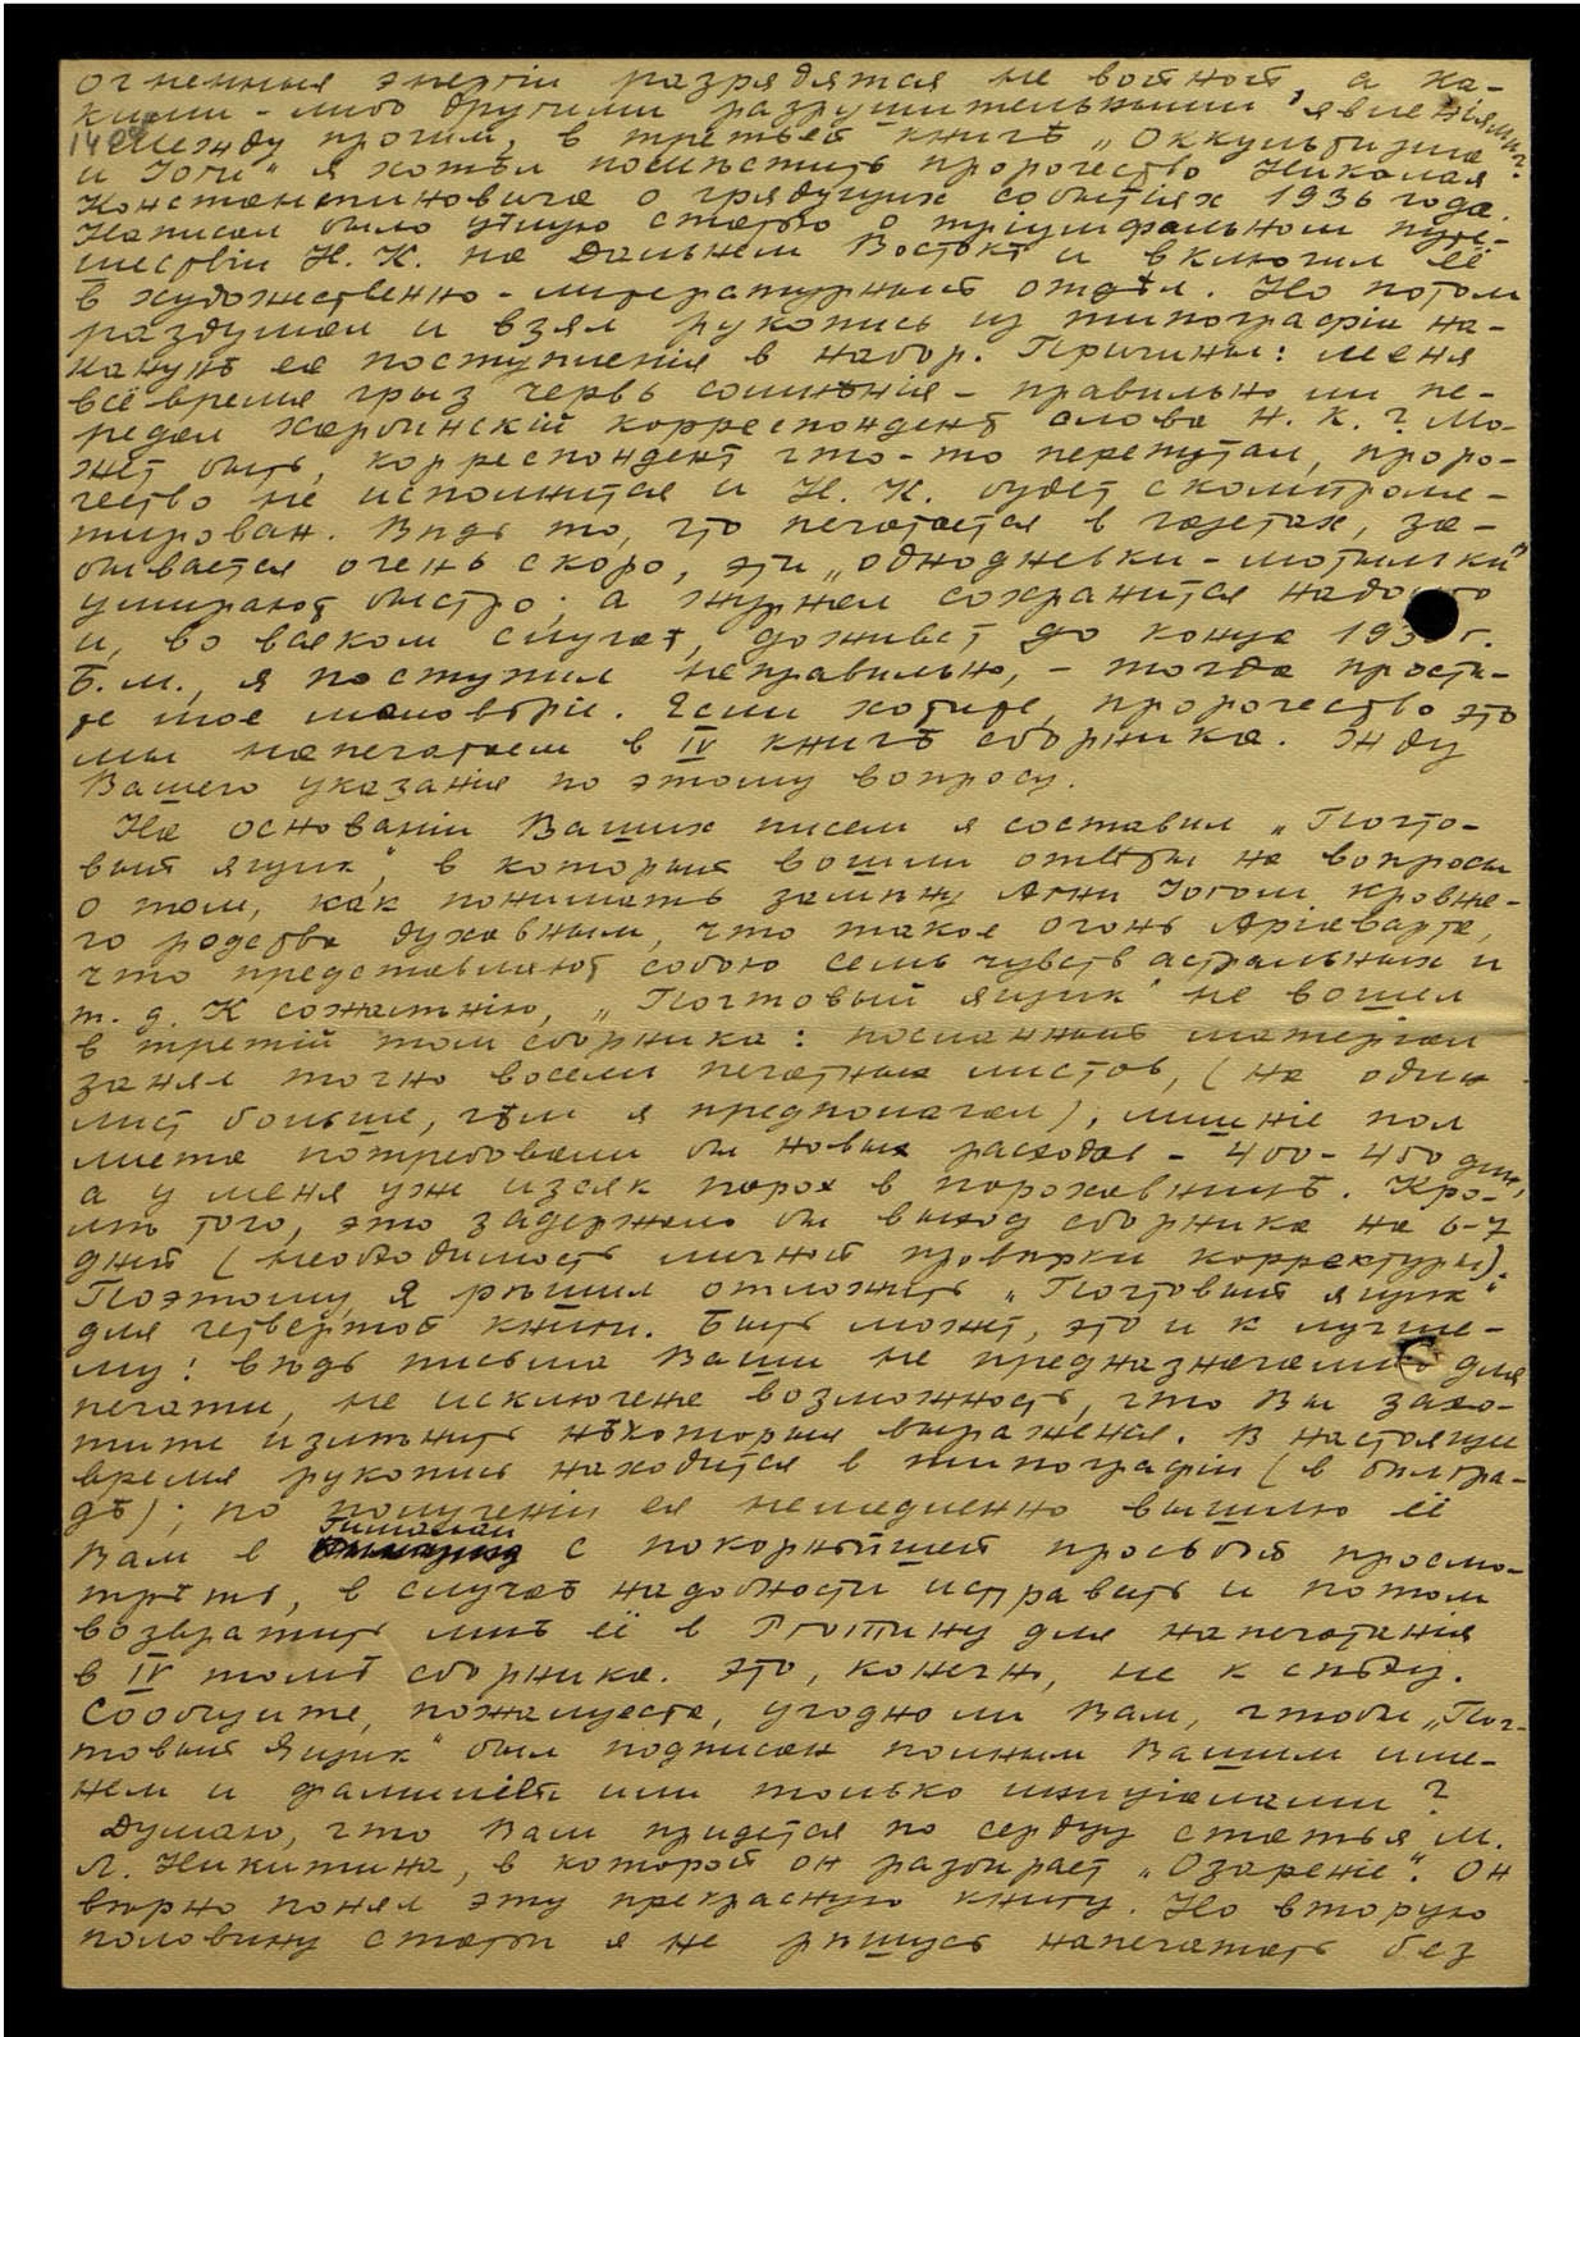 огненныя энергіи разрядятся не войной, а ка-
кими-либо другими разрушительными явленіями?
Между прочим, в третьей книгѣ „Оккультизма
и Іоги" я хотѣл помѣстить пророчество Николая
Константиновича о грядущих событіях 1936 года.
Написал было цѣлую статью о тріумфальном путе-
шествіи Н. К. на Дальнем Востокѣ и включил её
в художественно-литературный отдѣл. Но потом
раздумал и взял рукопись из типографіи на-
канунѣ ея поступленія в набор. Причины: меня
всё время грыз червь сомнѣнія – правильно ли пе-
редал харбинскій корреспондент слова Н. К.? Мо-
жет быть, корреспондент что-то перепутал, проро-
чество не исполнится и Н. К. будет скомпроме-
тирован. Вѣдь то, что печатается в газетах, за-
бывается очень скоро, эти „однодневки-мотыльки"
умирают быстро; а журнал сохранится надолго
и, во всяком случаѣ, доживет до конца 193 г.
Б. м., я поступил неправильно, – тогда прости-
те мое маловѣріе. Если хотите, пророчество это
мы напечатаем в IV книгѣ сборника. Жду
Вашего указанія по этому вопросу.
На основаніи Ваших писем я составил „Почто-
вый ящик", в который вошли отвѣты на вопросы
о том, как понимать замѣну Агни Іогом кровна-
го родства духовным, что такое огонь Аріаварта,
что представляют собою семь чувств астральных и
т. д. К сожалѣнію, „Почтовый ящик" не вошел
в третій том сборника: посланный матеріал
занял точно восемь печатных листов, (на один
лист больше, чѣм я предполагал), лишніе пол
листа потребовали бы новых расходов – 400-450 дин,
а у меня уж изсяк порох в пороховницѣ. Кро-
мѣ того, это задержало бы выход сборника на 6-7
дней (необходимость личной провѣрки корректуры).
Поэтому я рѣшил отложить „Почтовый ящик"
для четвертой книги. Быть может, это и к лучше-
му: вѣдь письма Ваши не предназначались для
печати, не исключена возможность, что Вы захо-
тите измѣнить нѣкоторыя выраженія. В настоящее
время рукопись находится в типографіи (в Бѣлгра-
дѣ); по полученіи ея немедленно вышлю её
Вам в Гималаи с покорнѣйшей просьбой просмо-
трѣть, в случаѣ надобности исправить и потом
возвратить мнѣ её в Гостину для напечатанія
в IV томѣ сборника. Это, конечно, не к спѣху.
Сообщите, пожалуйста, угодно ли Вам, чтобы „Поч-
товый Ящик" был подписан полным Вашим име-
нем и фамиліей или только иниціалами?
Думаю, что Вам придется по сердцу статья М.
Л. Никитина, в которой он разбирает „Озареніе". Он
вѣрно понял эту прекрасную книгу. Но вторую
половину статьи я не рѣшусь напечатать без